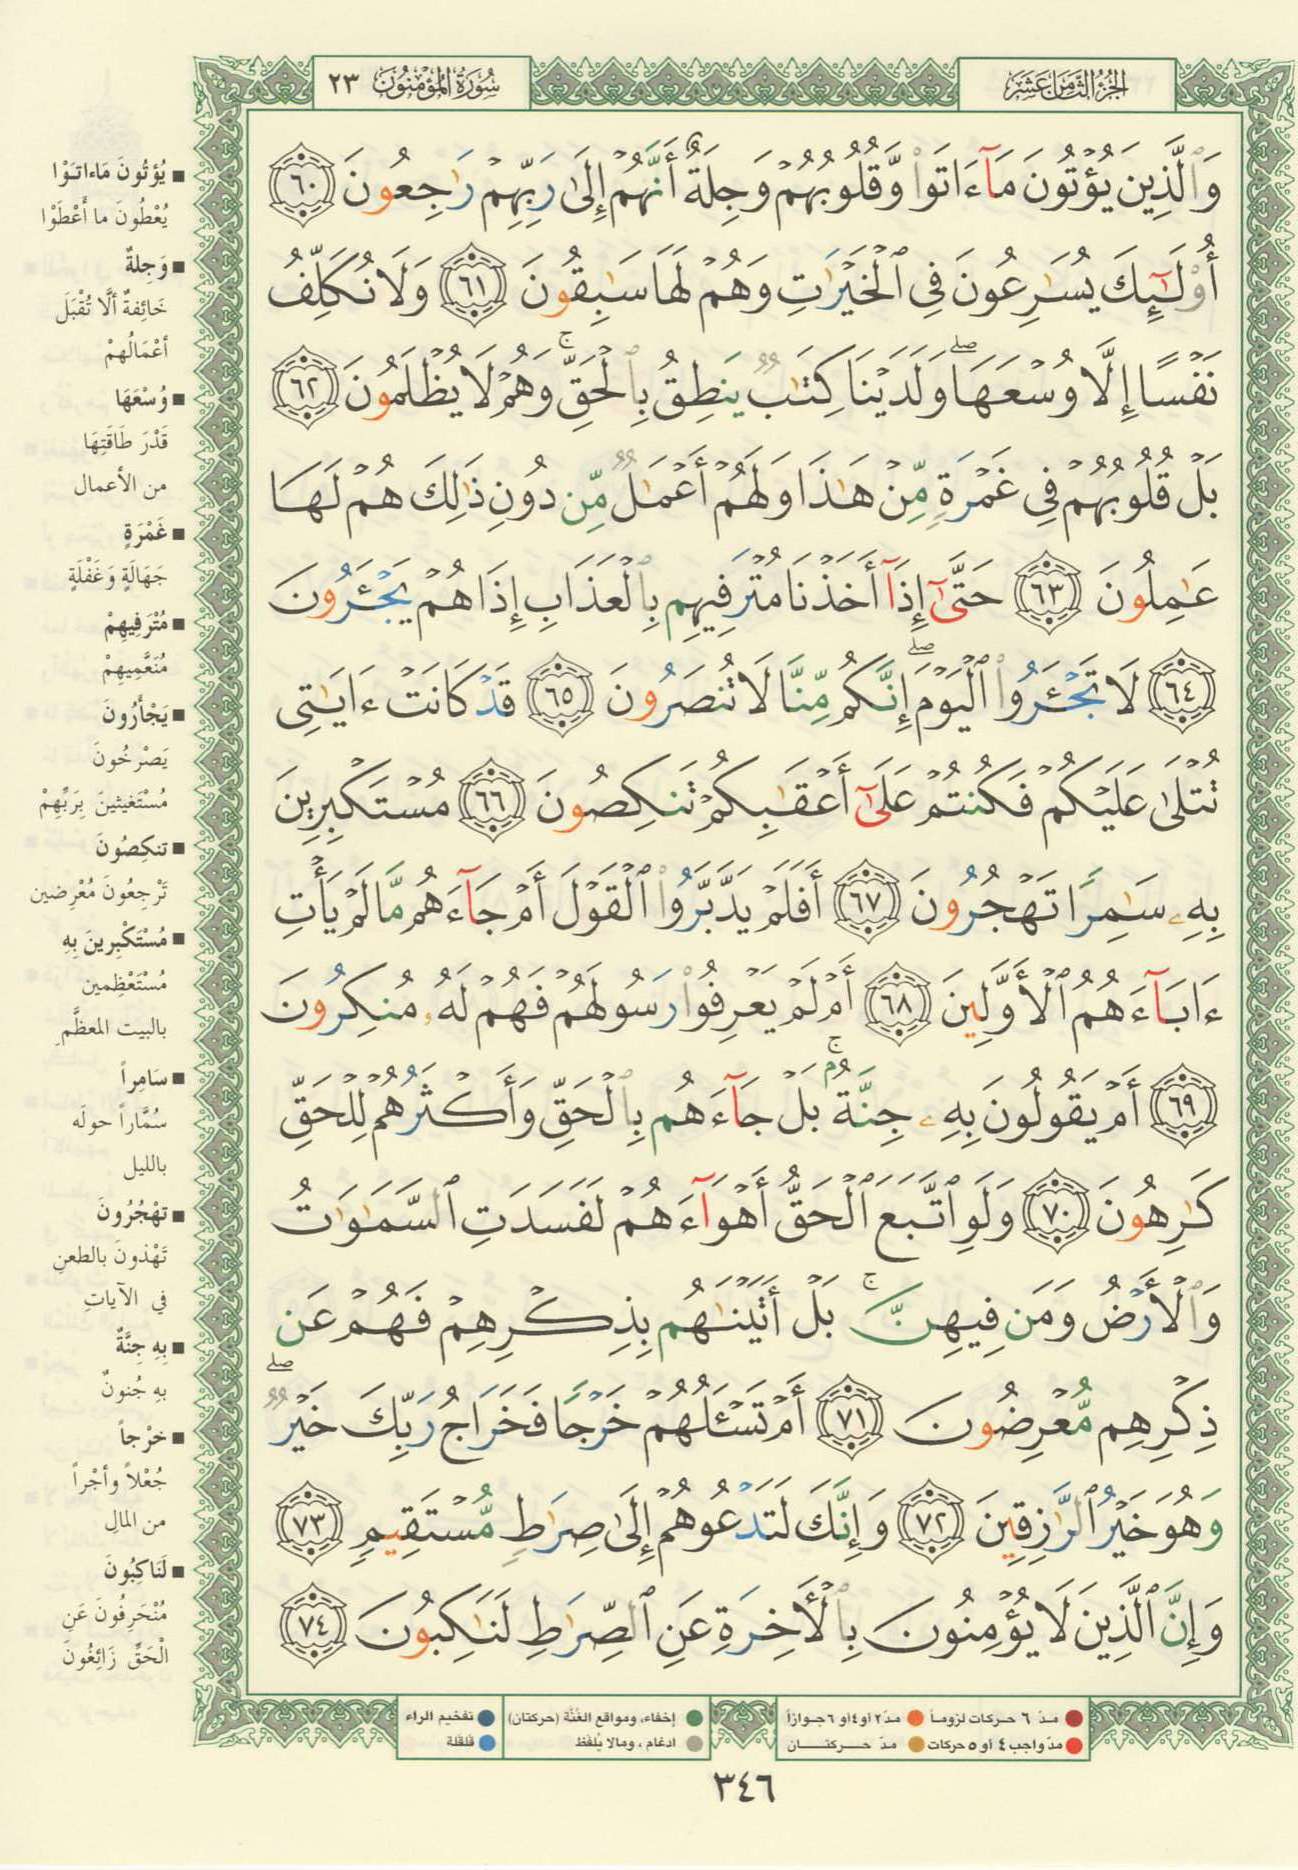 الجزء الثامن عشر
سورة المؤمنون ٢٣
وَٱلَّذِينَ يُؤْتُونَ مَآ ءَاتَوا۟ وَّقُلُوبُهُمْ وَجِلَةٌ أَنَّهُمْ إِلَىٰ رَبِّهِمْ رَٰجِعُونَ ٦٠
أُو۟لَٰٓئِكَ يُسَٰرِعُونَ فِى ٱلْخَيْرَٰتِ وَهُمْ لَهَا سَٰبِقُونَ ٦١ وَلَا نُكَلِّفُ
نَفْسًا إِلَّا وُسْعَهَا ۖ وَلَدَيْنَا كِتَٰبٌ يَنطِقُ بِٱلْحَقِّ ۚ وَهُمْ لَا يُظْلَمُونَ ٦٢
بَلْ قُلُوبُهُمْ فِى غَمْرَةٍ مِّنْ هَٰذَا وَلَهُمْ أَعْمَٰلٌ مِّن دُونِ ذَٰلِكَ هُمْ لَهَا
عَٰمِلُونَ ٦٣ حَتَّىٰٓ إِذَآ أَخَذْنَا مُتْرَفِيهِم بِٱلْعَذَابِ إِذَا هُمْ يَجْـَٔرُونَ
٦٤ لَا تَجْـَٔرُوا۟ ٱلْيَوْمَ ۖ إِنَّكُم مِّنَّا لَا تُنصَرُونَ ٦٥ قَدْ كَانَتْ ءَايَٰتِى
تُتْلَىٰ عَلَيْكُمْ فَكُنتُمْ عَلَىٰٓ أَعْقَٰبِكُمْ تَنكِصُونَ ٦٦ مُسْتَكْبِرِينَ
بِهِۦ سَٰمِرًا تَهْجُرُونَ ٦٧ أَفَلَمْ يَدَّبَّرُوا۟ ٱلْقَوْلَ أَمْ جَآءَهُم مَّا لَمْ يَأْتِ
ءَابَآءَهُمُ ٱلْأَوَّلِينَ ٦٨ أَمْ لَمْ يَعْرِفُوا۟ رَسُولَهُمْ فَهُمْ لَهُۥ مُنكِرُونَ
٦٩ أَمْ يَقُولُونَ بِهِۦ جِنَّةٌۢ ۚ بَلْ جَآءَهُم بِٱلْحَقِّ وَأَكْثَرُهُمْ لِلْحَقِّ
كَٰرِهُونَ ٧٠ وَلَوِ ٱتَّبَعَ ٱلْحَقُّ أَهْوَآءَهُمْ لَفَسَدَتِ ٱلسَّمَٰوَٰتُ
وَٱلْأَرْضُ وَمَن فِيهِنَّ ۚ بَلْ أَتَيْنَٰهُم بِذِكْرِهِمْ فَهُمْ عَن
ذِكْرِهِم مُّعْرِضُونَ ٧١ أَمْ تَسْـَٔلُهُمْ خَرْجًا فَخَرَاجُ رَبِّكَ خَيْرٌ ۖ
وَهُوَ خَيْرُ ٱلرَّٰزِقِينَ ٧٢ وَإِنَّكَ لَتَدْعُوهُمْ إِلَىٰ صِرَٰطٍ مُّسْتَقِيمٍ ٧٣
وَإِنَّ ٱلَّذِينَ لَا يُؤْمِنُونَ بِٱلْأَخِرَةِ عَنِ ٱلصِّرَٰطِ لَنَٰكِبُونَ ٧٤
■ يُؤْتُونَ مَاءاتَوْا
يُعْطُونَ ما أَعْطَوْا
■ وَجِلةٌ
خَائِفةٌ ألَّا تُقْبَلَ
أعْمَالُهمْ
■ وُسْعَهَا
قَدْرَ طَاقَتِهَا
من الأعمال
■ غَمْرَةٍ
جَهَالَةٍ وَغَفْلَةٍ
■ مُتْرَفِيهِمْ
مُنَعَّمِيهِمْ
■ يَجْأَرُونَ
يَصْرخُونَ
مُسْتَغِيثينَ بِرَبِّهِمْ
■ تنكِصُونَ
تَرْجِعُونَ مُعْرِضين
■ مُسْتَكْبِرينَ بِهِ
مُسْتَعْظِمين
بالبيت المعظَّمِ
■ سَامِراً
سُمَّاراً حولَه
بالليل
■ تهْجُرُونَ
تَهْذونَ بالطعنِ
في الآياتِ
■ بِهِ جِنَّةٌ
بِهِ جُنونٌ
■ خرْجاً
جُعْلاً وأجْراً
من المالِ
■ لَنَاكِبُونَ
مُنْحَرِفُونَ عَنِ
الْحَقِّ زَائِغُونَ
مدّ ٦ حركات لزوماً
مدّ ٢ أو ٤ أو ٦ جوازاً
إخفاء، ومواقع الغُنَّة (حركتان)
تفخيم الراء
مدّ واجب ٤ أو ٥ حركات
مدّ حركتان
ادغام ، ومالا يُلفَظ
قلقلة
٣٤٦